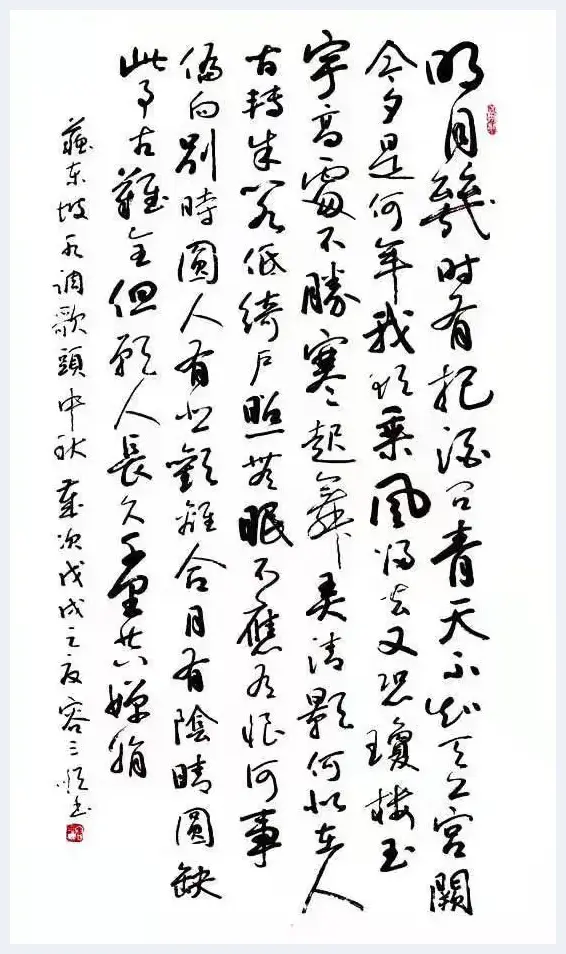 明月幾时有把酒问青天不知天上宫闕
今夕是何年我欲乘風归去又恐瓊楼玉
宇高處不勝寒起舞弄清影何似在人
间轉朱阁低绮户照無眠不應有恨何事
偏向别時圓人有悲歡離合月有陰晴圓缺
此事古難全但願人長久千里共嬋娟
蘇东坡水调歌頭中秋 歲次戊戌之夏容三书